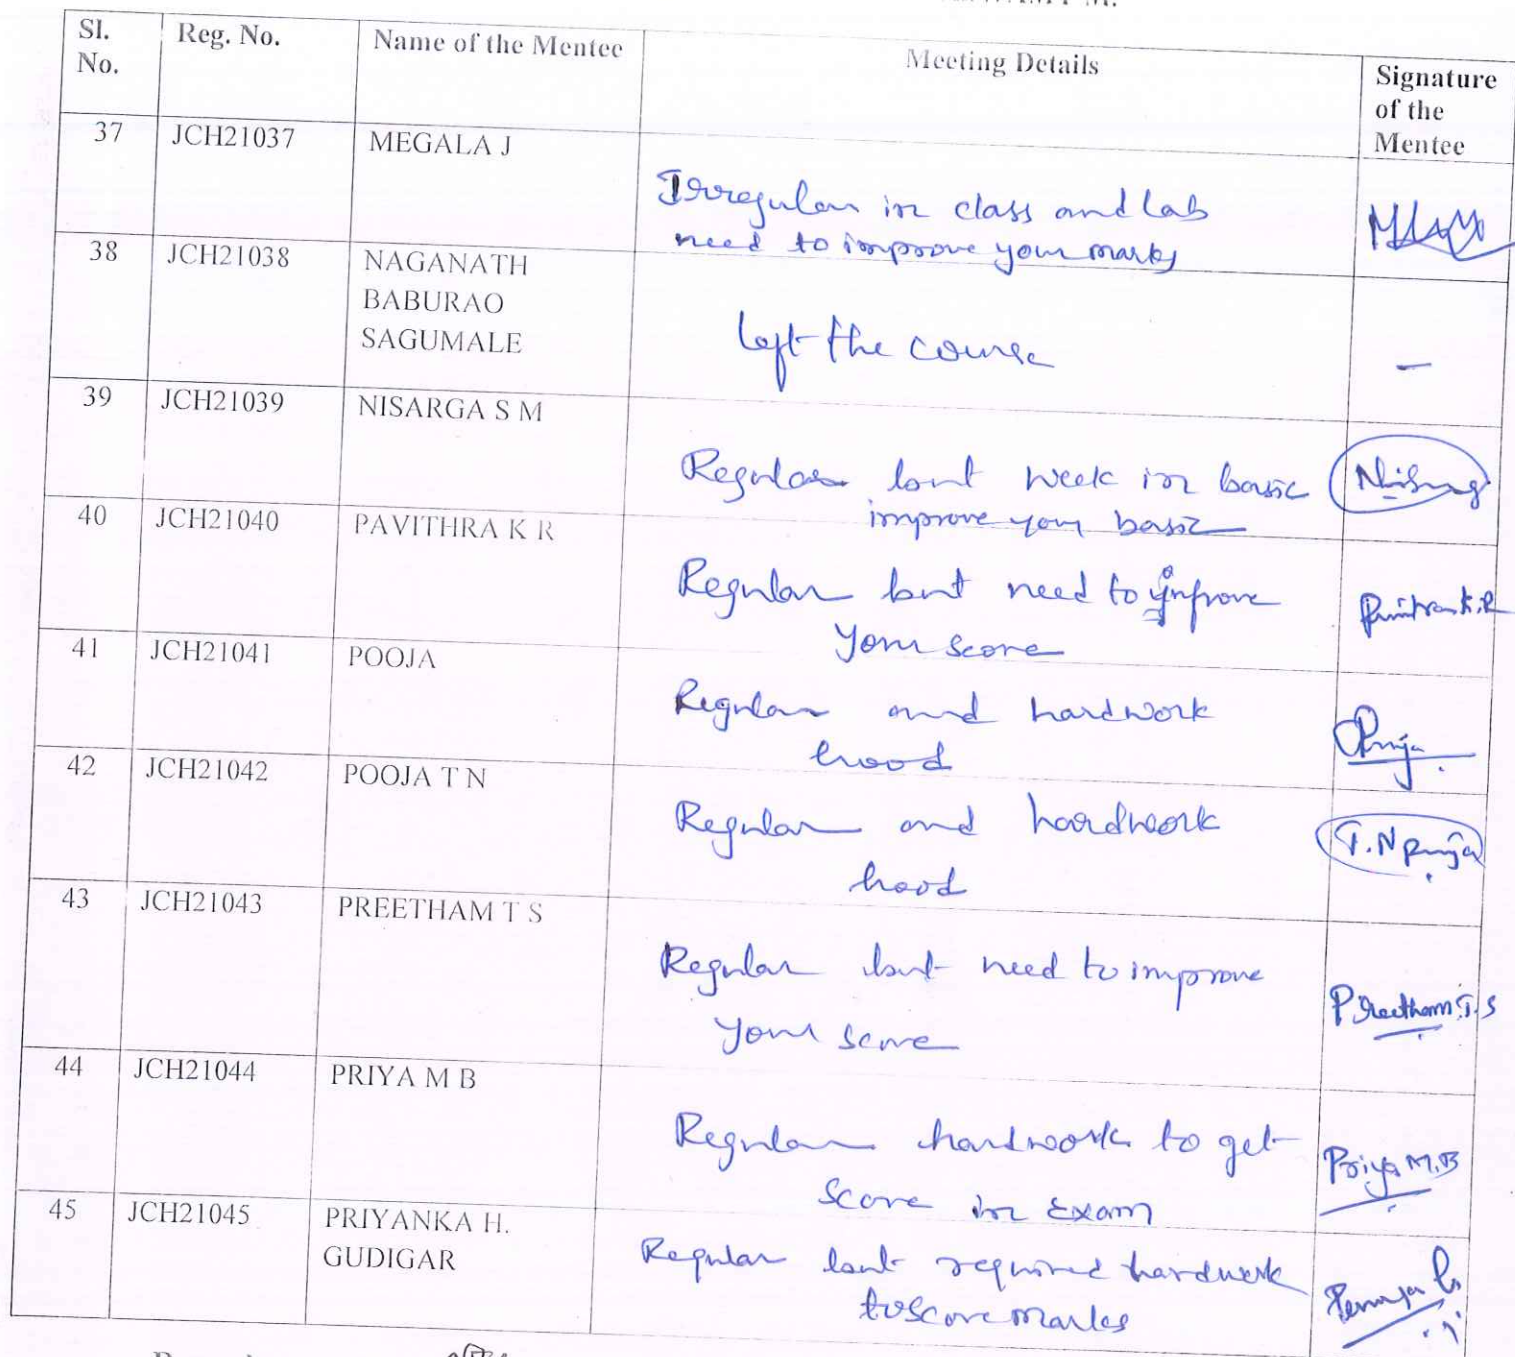 Sl. No. Reg. No. Name of the Mentee Meeting Details Signature of the Mentee
37 JCH21037 MEGALA J
Irregular in class and lab
need to improve your marks
38 JCH21038 NAGANATH
BABURAO
SAGUMALE
left the course
–
39 JCH21039 NISARGA S M
Regular but week in basic
improve your basic
40 JCH21040 PAVITHRA K R
Regular but need to improve
your score
41 JCH21041 POOJA
Regular and hardwork
Good
42 JCH21042 POOJA T N
Regular and hardwork
Good
T.N Pooja
43 JCH21043 PREETHAM T S
Regular but need to improve
your score
Preetham T.S
44 JCH21044 PRIYA M B
Regular hardwork to get
score in Exam
Priya M.B
45 JCH21045 PRIYANKA H.
GUDIGAR
Regular but required hardwork
to score marks